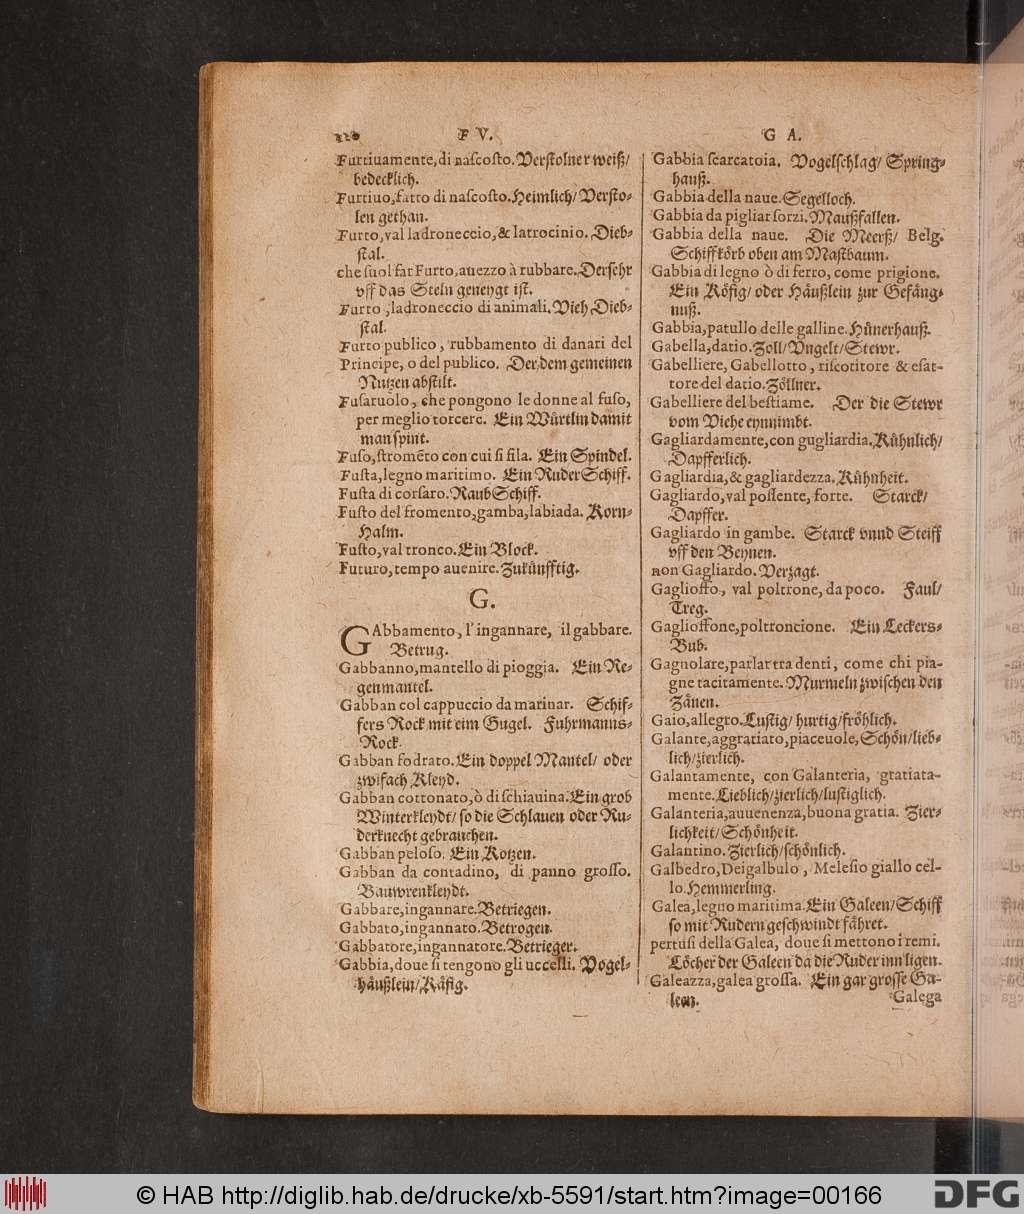 F V.
Furtiuamente, di naſcoſto. Verſtolner weiß/
bedecklich.
Furtiuo, fatto di naſcoſto. Heimlich/ Verſto-
len gethan.
Furto, val ladroneccio, & latrocinio. Dieb-
ſtal.
che ſuol far Furto, auezzo à rubbare. Der ſehr
vff das Steln geneygt iſt.
Furto, ladroneccio di animali. Vieh Dieb-
ſtal.
Furto publico, rubbamento di danari del
Principe, o del publico. Der dem gemeinen
Nutzen abſtilt.
Fuſaruolo, che pongono le donne al fuſo,
per meglio torcere. Ein Wuͤrtlin damit
man ſpint.
Fuſo, ſtromẽto con cui ſi fila. Ein Spindel.
Fuſta, legno maritimo. Ein Ruder Schiff.
Fuſta di corſaro. Raub Schiff.
Fuſto del fromento, gamba, labiada. Korn-
Halm.
Fuſto, val tronco. Ein Block.
Futuro, tempo auenire. Zukuͤnfftig.
G.
GAbbamento, l'ingannare, il gabbare.
Betrug.
Gabbanno, mantello di pioggia. Ein Re-
genmantel.
Gabban col cappuccio da marinar. Schif-
fers Rock mit eim Gugel. Fuhrmanns-
Rock.
Gabban fodrato. Ein doppel Mantel/ oder
zwifach Kleyd.
Gabban cottonato, ò di ſchiauina. Ein grob
Winterkleydt/ ſo die Schlauen oder Ru-
derknecht gebrauchen.
Gabban peloſo. Ein Kotzen.
Gabban da contadino, di panno groſſo.
Bauwrenkleydt.
Gabbare, ingannare. Betriegen.
Gabbato, ingannato. Betrogen.
Gabbatore, ingannatore. Betrieger.
Gabbia, doue ſi tengono gli uccelli. Vogel-
haͤußlein/ Kaͤfig.
G A.
Gabbia ſcarcatoia. Vogelſchlag/ Spring-
hauß.
Gabbia della naue. Segelloch.
Gabbia da pigliar ſorzi. Maußfallen.
Gabbia della naue. Die Meerß/ Belg.
Schiffkoͤrb oben am Maſtbaum.
Gabbia di legno ò di ferro, come prigione.
Ein Koͤfig/ oder Haͤußlein zur Gefaͤng-
nuß.
Gabbia, patullo delle galline. Huͤnerhauß.
Gabella, datio. Zoll/ Vngelt/ Stewr.
Gabelliere, Gabellotto, riſcotitore & eſat-
tore del datio. Zoͤllner.
Gabelliere del beſtiame. Der die Stewr
vom Viehe eynnimbt.
Gagliardamente, con gugliardia. Kuͤhnlich/
Dapfferlich.
Gagliardia, & gagliardezza. Kuͤhnheit.
Gagliardo, val poſſente, forte. Starck/
Dapffer.
Gagliardo in gambe. Starck vnnd Steiff
vff den Beynen.
non Gagliardo. Verzagt.
Gaglioffo, val poltrone, da poco. Faul/
Treg.
Gaglioffone, poltroncione. Ein Leckers-
Bub.
Gagnolare, parlar tra denti, come chi pia-
gne tacitamente. Murmeln zwiſchen den
Zaͤnen.
Gaio, allegro. Luſtig/ hurtig/ froͤhlich.
Galante, aggratiato, piaceuole, Schoͤn/ lieb-
lich/ zierlich.
Galantamente, con Galanteria, gratiata-
mente. Lieblich/ zierlich/ luſtiglich.
Galanteria, auuenenza, buona gratia. Zier-
lichkeit/ Schoͤnheit.
Galantino. Zierlich/ ſchoͤnlich.
Galbedro, Deigalbulo, Meleſio giallo cel-
lo. Hemmerling.
Galea, legno maritima. Ein Galeen/ Schiff
ſo mit Rudern geſchwindt faͤhret.
pertuſi della Galea, doue ſi mettono i remi.
Loͤcher der Galeen da die Ruder inn ligen.
Galeazza, galea groſſa. Ein gar groſſe Ga-
leen.
Galega
© HAB http://diglib.hab.de/drucke/xb-5591/start.htm?image=00166
DFG